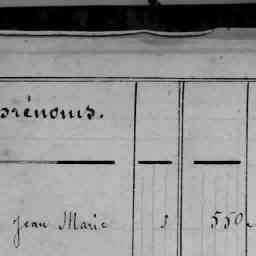 prénoms.
Jean Marie 3 550